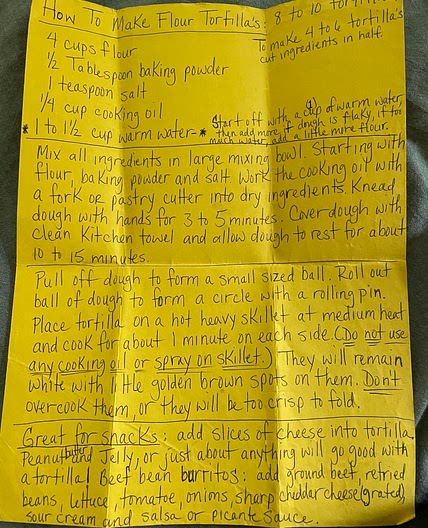 How To Make Flour Tortilla's: 8 to 10 tortilla's
To make 4 to 6 tortilla's
cut ingredients in half.
4 cups flour
½ Tablespoon baking powder
1 teaspoon salt
¼ cup cooking oil
* 1 to 1½ cup warm water-* Start off with a cup of warm water,
then add more if dough is flaky, if too
much water, add a little more flour.
Mix all ingredients in large mixing bowl. Starting with
flour, baking powder and salt. Work the cooking oil with
a fork or pastry cutter into dry ingredients. Knead
dough with hands for 3 to 5 minutes. Cover dough with
clean Kitchen towel and allow dough to rest for about
10 to 15 minutes.
Pull off dough to form a small sized ball. Roll out
ball of dough to form a circle with a rolling pin.
Place tortilla on a hot heavy skillet at medium heat
and cook for about 1 minute on each side. (Do not use
any cooking oil or spray on skillet.) They will remain
white with little golden brown spots on them. Don't
overcook them, or they will be too crisp to fold.
Great for snacks: add slices of cheese into tortilla,
Peanut butter and Jelly, or just about anything will go good with
a tortilla! Beef bean burritos: add ground beef, refried
beans, lettuce, tomatoe, onions, sharp cheddar cheese (grated),
sour cream and salsa or picante sauce